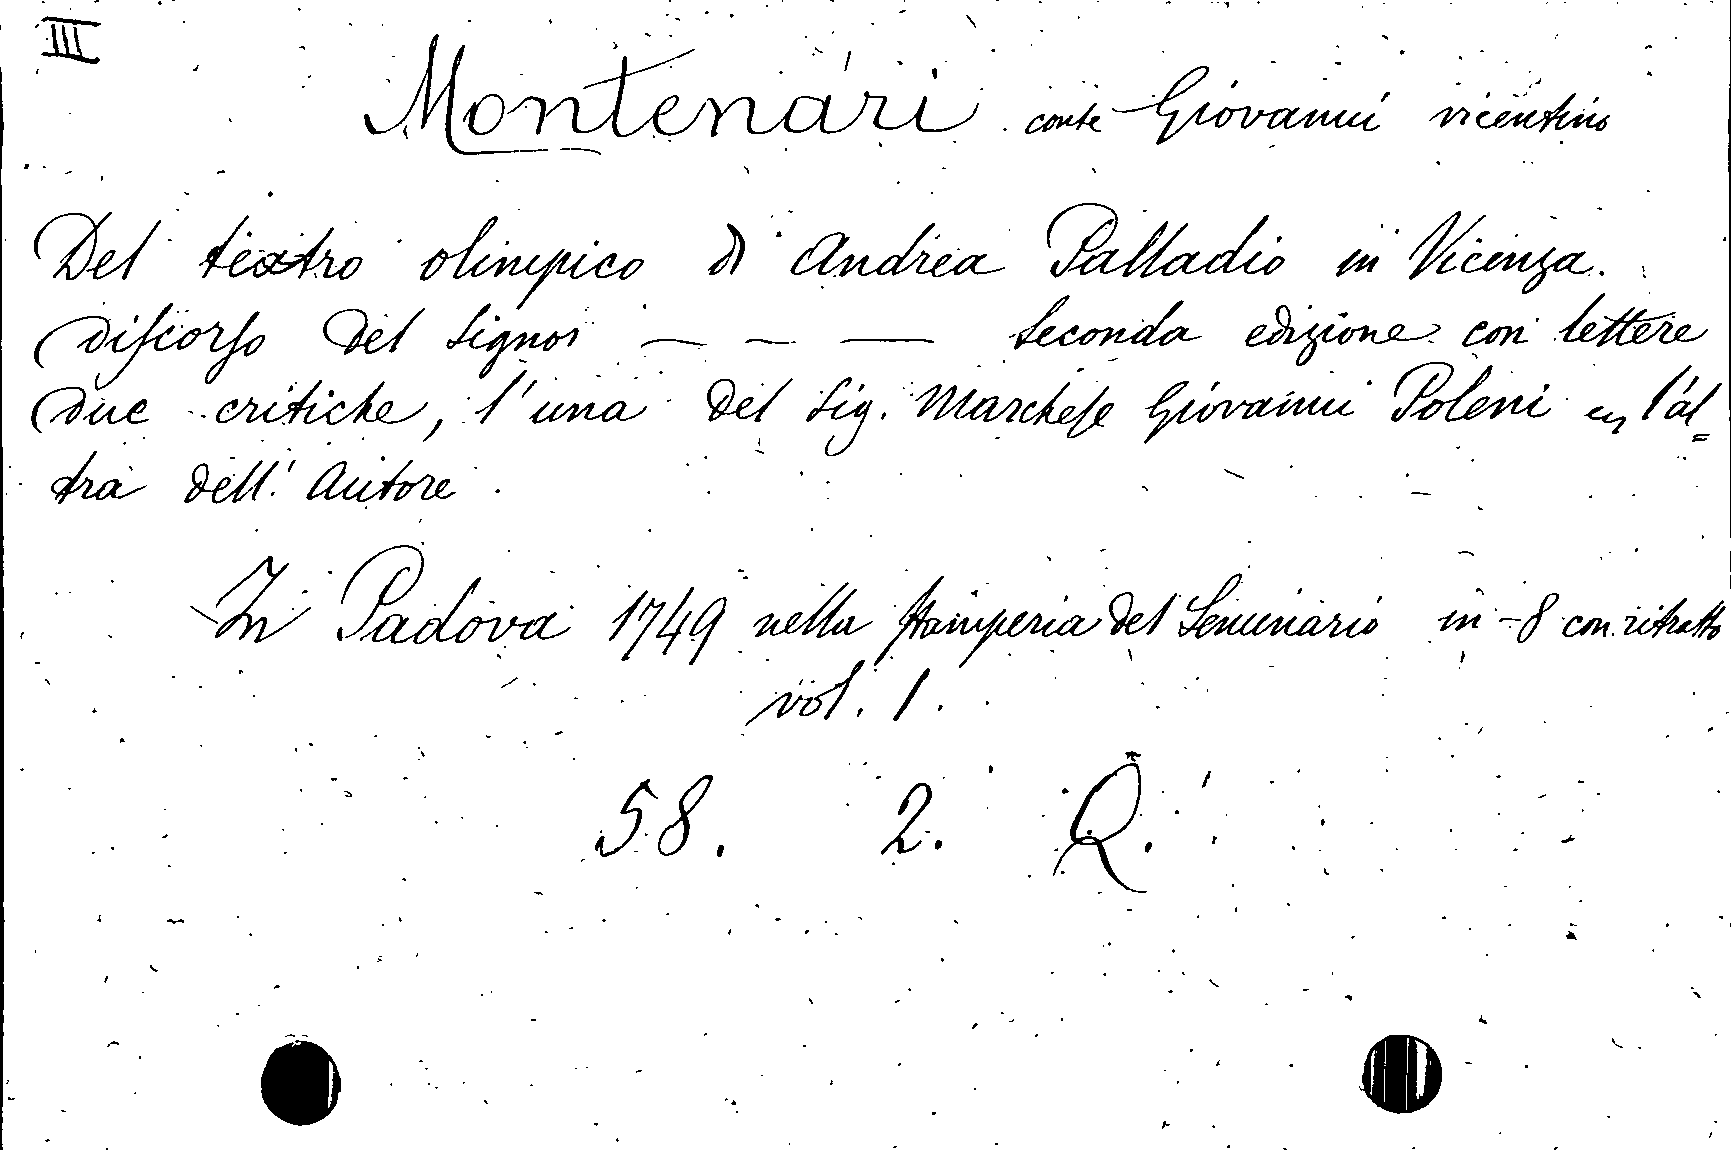 III
Montenari conte Giovanni vicentino
Del teatro olimpico di Andrea Palladio in Vicenza.
Discorso del signor — — — Seconda edizione con lettere
due critiche, l'una del sig. Marchese Giovanni Poleni e l'al=
tra dell' autore.
In Padova 1749 nella stamperia del Seminario in-8 con ritratto
vol. 1.
58. 2. Q.